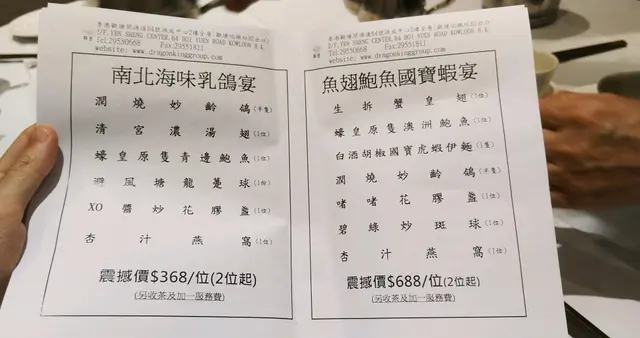 2/F, YEN SHENG CENTER, 64 HOI YUEN ROAD KOWLOON H.K.
Tel:29550668 Fax:29551811
website: www.dragonkinggroup.com
南北海味乳鴿宴
潤燒妙齡鴿(半隻)
清宮濃湯翅(1位)
蠔皇原隻青邊鮑魚(1位)
避風塘龍躉球(1份)
XO醬炒花膠盞(1位)
杏汁燕窩(1位)
震撼價$368/位(2位起)
(另收茶及加一服務費)
2/F, YEN SHENG CENTER, 64 HOI YUEN ROAD KOWLOON H.K.
Tel:29550668 Fax:29551811
website: www.dragonkinggroup.com
魚翅鮑魚國寶蝦宴
生拆蟹皇翅(1位)
蠔皇原隻澳洲鮑魚(1位)
白酒胡椒國寶虎蝦伊麵(1隻)
潤燒妙齡鴿(半隻)
啫啫花膠盞(1位)
碧綠炒斑球(1位)
杏汁燕窩(1位)
震撼價$688/位(2位起)
(另收茶及加一服務費)